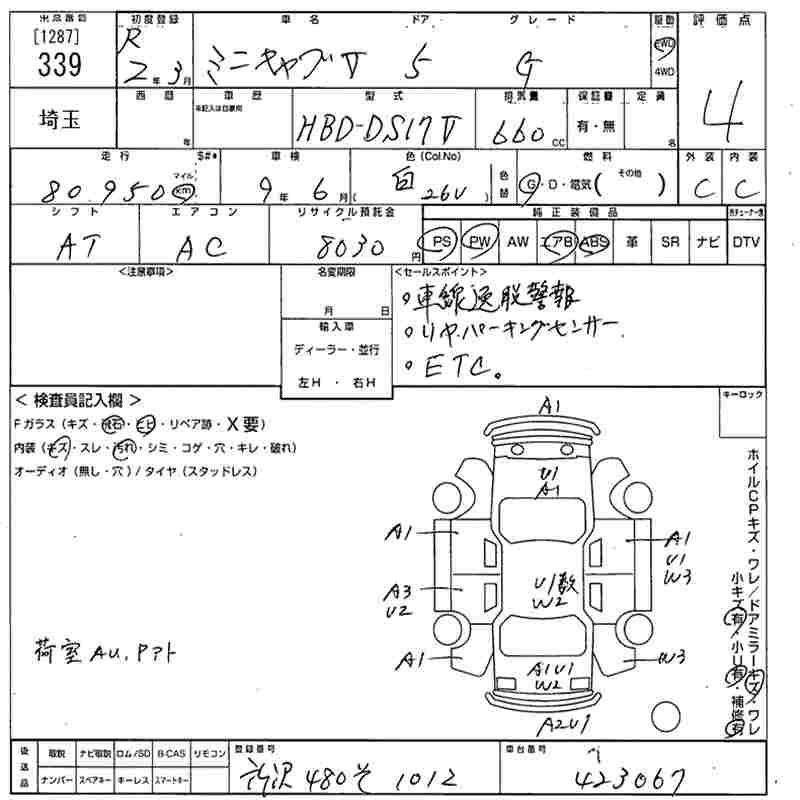 出品番号 初度登録 車名 ドア グレード 駆動 評価点
[1287] R 2WD
339 2年3月 ミニキャブV 5 G 4WD 4
西暦 車歴 型式 排気量 保証書 定員
未記入は自家用
埼玉 年 HBD-DS17V 660cc 有・無 名
走行 S#* 車検 色(Col.No) 燃料 外装 内装
マイル 色替 (その他)
80,950km 9年6月 (白 26U) G・D・電気( ) C C
シフト エアコン リサイクル預託金 純正装備品
AT AC 8030円 PS PW AW エアB ABS 革 SR ナビ DTV
<注意事項> 名変期限 <セールスポイント>
月 日
・車線逸脱警報
輸入車
・リヤパーキングセンサー
ディーラー・並行
・ETC.
左H・右H
<検査員記入欄> キーロック
Fガラス(キズ・飛石・ヒビ・リペア跡・X要)
内装(キズ・スレ・汚れ・シミ・コゲ・穴・キレ・破れ)
オーディオ(無し・穴)/タイヤ(スタッドレス)
A1
U1
A1
A1 A1
U1
W3
A3 U1数
U2 W2
A1 W3
A1U1
W2
A2U1
荷室AU,Pアト
ホイルCPキズ・ワレ/ドアミラーキズ・ワレ
小キズ有・小U有・補修有
後送品 取説 ナビ取説 ロム/SD B-CAS リモコン 登録番号 車台番号
ナンバー スペアキー キーレス スマートキー 所沢 480そ 1012 423067